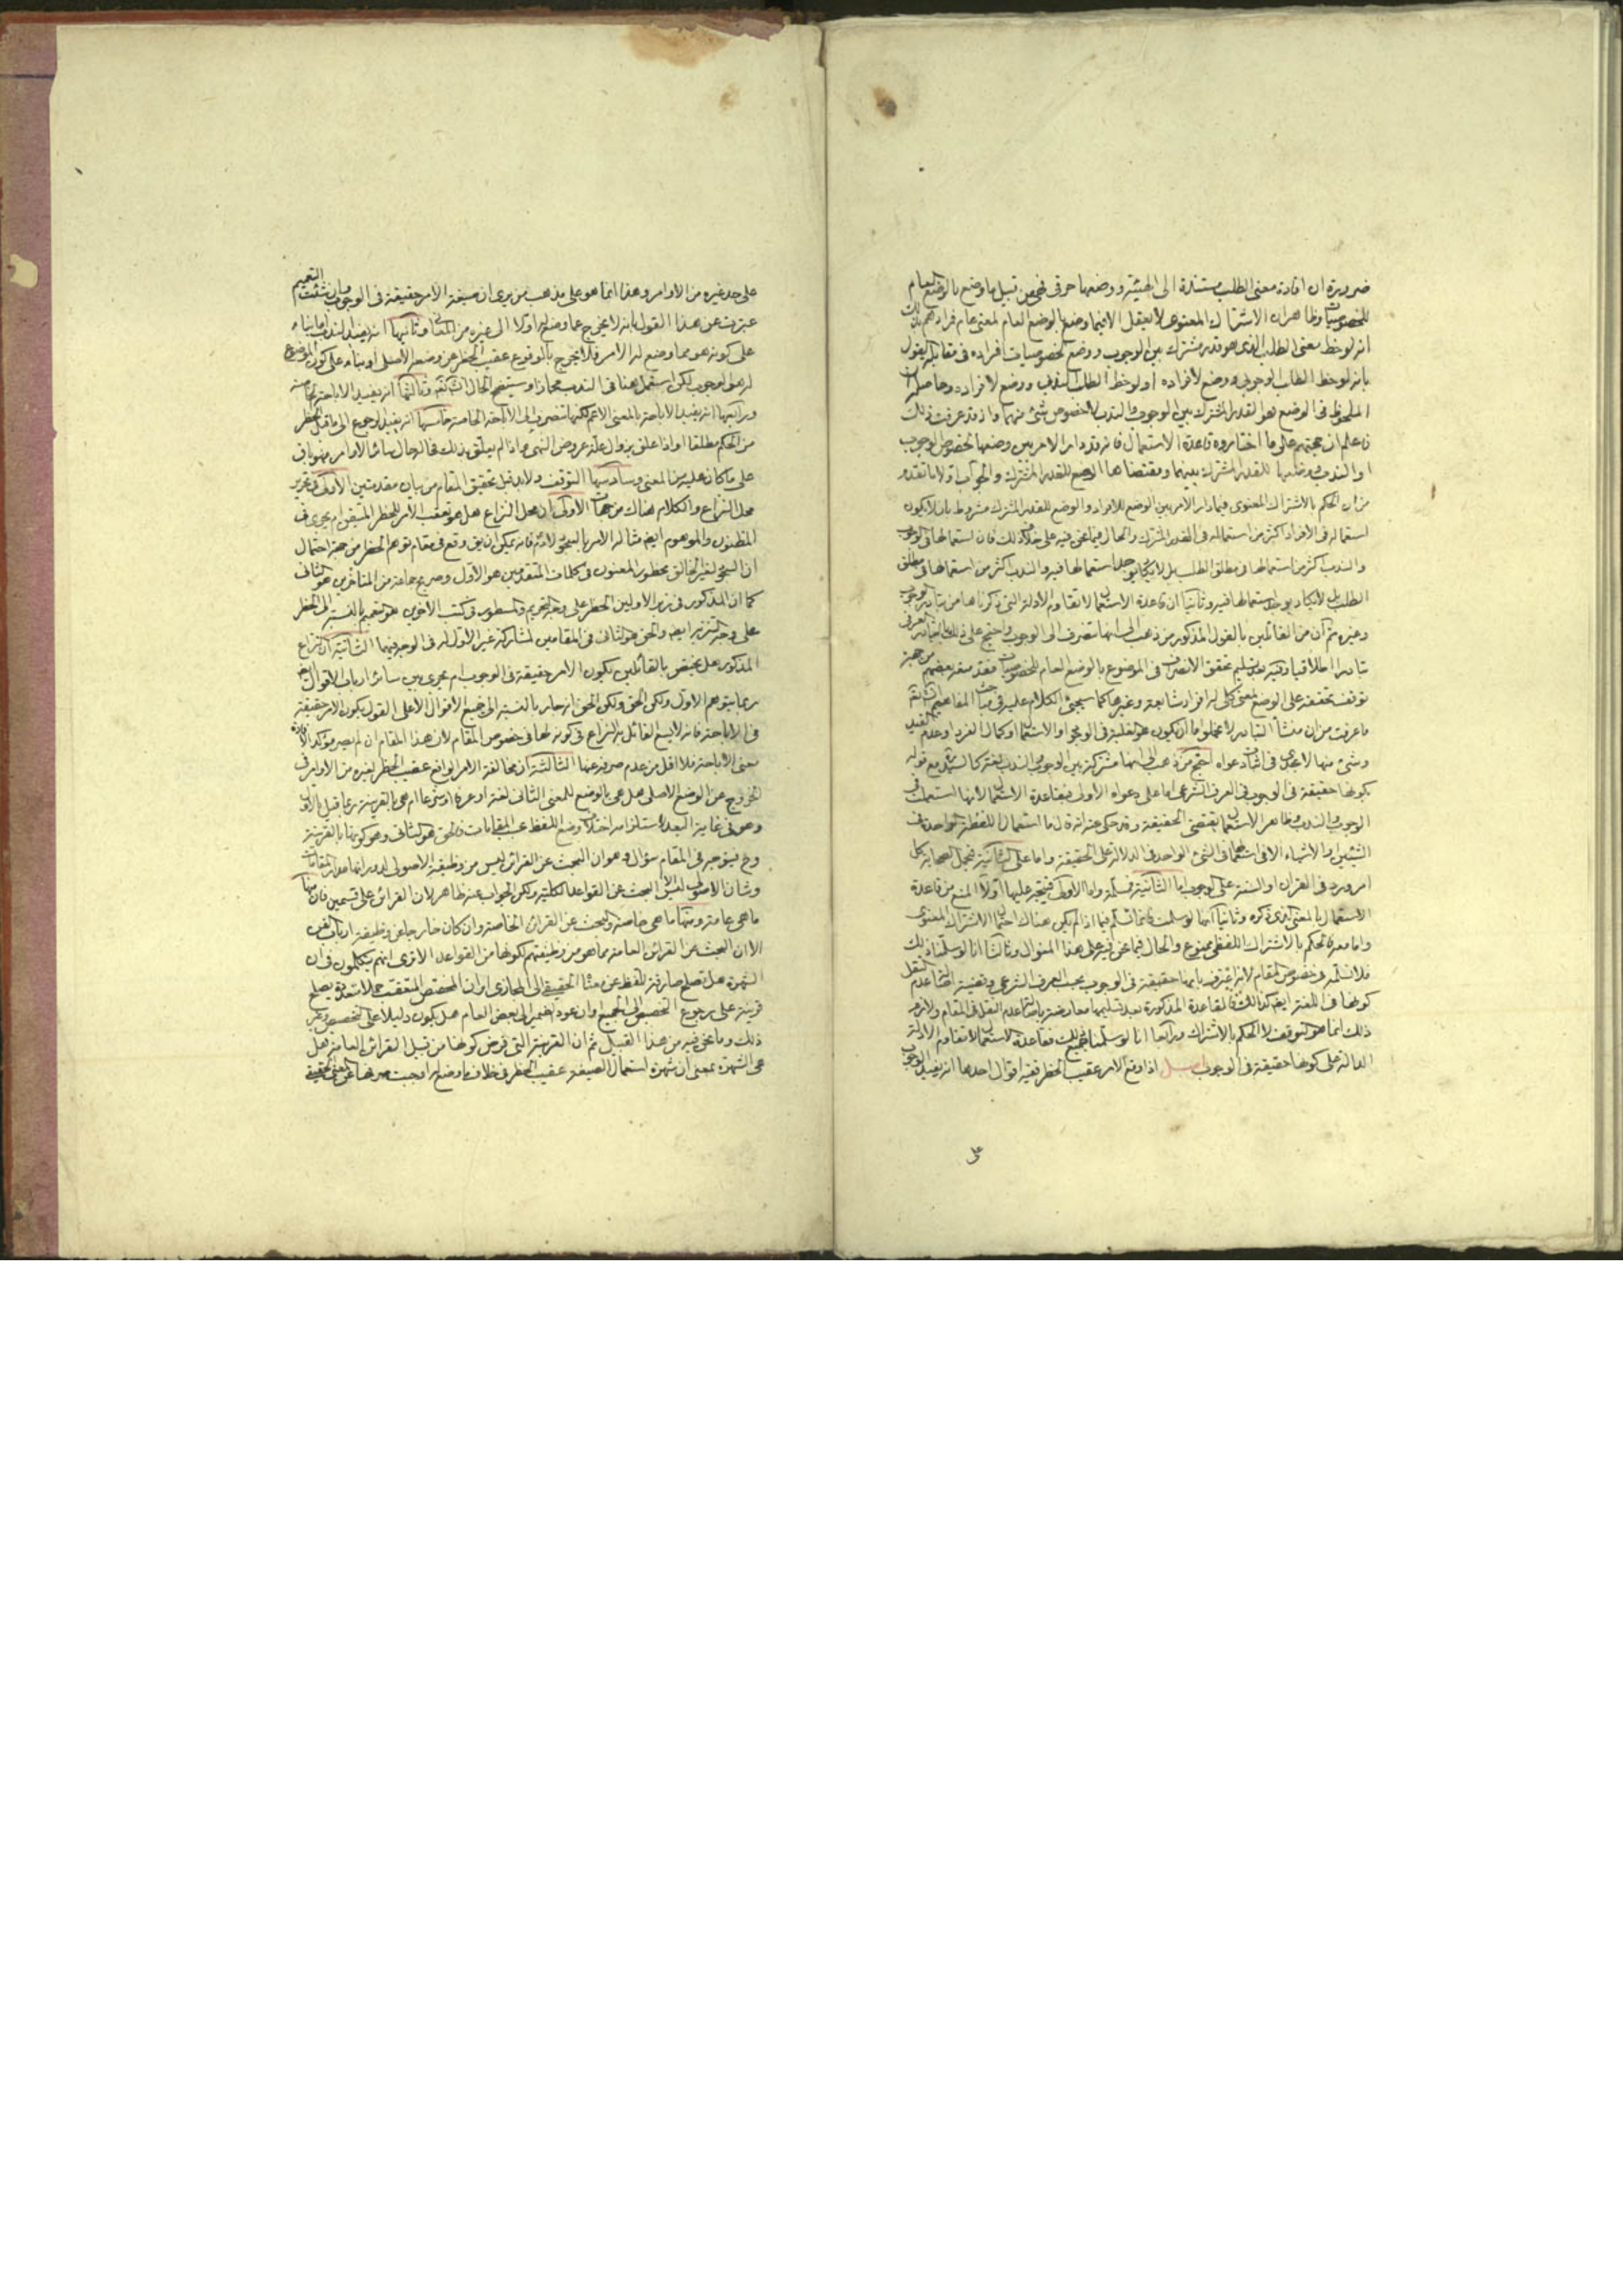 ضرورة ان افادة معنى الطلب مستندة الى الهيئة ووضعها حرفى فهى من قبيل ما وضع بالوضع العام
للخصوصيات وظاهر ان الاشتراك المعنوى لا يعقل الا فيما وضع بالوضع العام لمعنى عام فمرادهم بذلك
انه لوحظ معنى الطلب الذى هو قدر مشترك بين الوجوب ووضع لخصوصيات افراده فى مقابلة من يقول
بانه لوحظ الطلب الوجوبى ووضع لافراده او لوحظ الطلب الندبى ووضع لافراده وحاصله ان
الملحوظ فى الوضع هو القدر المشترك بين الوجوب والندب لا خصوص شئ منهما واذ قد عرفت ذلك
فاعلم ان حجتهم على ما اختاروه قاعدة الاستعمال فانه قد دار الامر بين وضعها لخصوص الوجوب
او الندب ووضعها للقدر المشترك بينهما ومقتضاها الوضع للقدر المشترك والجواب اولا ما تقدم
من ان الحكم بالاشتراك المعنوى فيما دار الامر بين الوضع للافراد والوضع للقدر المشترك مشروط بان لا يكون
استعماله فى الافراد اكثر من استعماله فى القدر المشترك والحال فيما نحن فيه على خلاف ذلك فان استعمالها فى الوجوب
والندب اكثر من استعمالها فى مطلق الطلب بل لا يكاد يوجد استعمالها فيه والندب اكثر من استعمالها فى مطلق
الطلب بل لا يكاد يوجد استعمالها فيه وثانيا ان قاعدة الاستعمال لا تقاوم الادلة التى ذكرناها من تبادر الوجوب
وغيره ثم ان من القائلين بالقول المذكور من ذهب الى انها تنصرف الى الوجوب واحتج على ذلك بالتبادر العرفى
تبادرا اطلاقيا وفيه بعد تسليم تحقق الانصراف فى الموضوع بالوضع العام للخصوصيات فقد منعه بعضهم من جهة
توقف تحققه على الوضع لمعنى كلى له افراد شايعة وغيرها كما سيجئ الكلام عليه فى مباحث المفاهيم انه قد
ما عرفت من ان منشأ التبادر لا يخلو اما ان يكون هو الغلبة فى الوجود او الاستعمال او كمال الفرد او عدم القيد
وشئ منها لا يجدى فى اثبات دعواه احتج من ذهب الى انها مشتركة بين الوجوب والندب لغة كالسيد ره مع قوله
بكونها حقيقة فى الوجوب فى العرف الشرعى اما على دعواه الاولى فبقاعدة الاستعمال لانها استعملت فى
الوجوب والندب وظاهر الاستعمال يقتضى الحقيقة وقد حكى عنه انه قال ما استعمال اللفظة الواحدة فى
الشيئين او الاشياء الا كاستعمالها فى الشئ الواحد فى الدلالة على الحقيقة واما على الثانية فبحمل الصحابة كل
امر ورد فى القران او السنة على الوجوب اما الثانية فمسلمة واما الاولى فيتجه عليها اولا المنع من قاعدة
الاستعمال بالمعنى الذى ذكره وثانيا انها لو سلمت فانما تسلم فيما اذا لم يكن هناك احتمال الاشتراك المعنوى
واما معه فالحكم بالاشتراك اللفظى ممنوع والحال فيما نحن فيه على هذا المنوال وثالثا انا لو سلمنا ذلك
فلا نسلمه فى خصوص المقام لانه اعترف بانها حقيقة فى الوجوب بحسب العرف الشرعى وقضية اصالة عدم النقل
كونها فى اللغة ايضا كذلك فالقاعدة المذكورة بعد تسليمها معارضة باصالة عدم النقل فى المقام ولازم
ذلك انما هو التوقف لا الحكم بالاشتراك ورابعا انا لو سلمنا جميع ذلك فقاعدة الاستعمال لا تقاوم الادلة
الدالة على كونها حقيقة فى الوجوب اصل اذا وقع الامر عقيب الحظر ففيه اقوال احدها انه يفيد الوجوب
على
على حد غيره من الاوامر وهذا انما هو على مذهب من يرى ان صيغة الامر حقيقة فى الوجوب وان شئت التعميم
عبرت عن هذا القول بانه لا يخرج عما وضع له اولا الى غيره من المعانى وثانيها انه يفيد الندب اما بناء
على كونه هو مما وضع له الامر فلا يخرج بالوقوع عقيب الحظر عن وضعه الاصلى او بناء على كون الموضوع
له هو الوجوب لكن استعمل هنا فى الندب مجازا وسيتضح الحال انشاء الله وثالثها انه يفيد الاباحة الخاصة
ورابعها انه يفيد الاباحة بالمعنى الاعم لكنها تنصرف الى الاباحة الخاصة خامسها انه يفيد الرجوع الى ما قبل الحظر
من الحكم مطلقا او اذا علق بزوال علة عروض النهى واذا لم يعلق بذلك فالحال سائر الاوامر فهو باق
على ما كان عليه من المعنى وسادسها التوقف ولا بد قبل تحقيق المقام من بيان مقدمتين الاولى فى تحرير
محل النزاع والكلام هناك من جهات الاولى ان محل النزاع هل هو تعقب الامر للحظر المتيقن ام يجرى فى
المظنون والموهوم ايضا مثاله الامر بالسجود لادم فانه يمكن ان يق وقع فى مقام توهم الحظر من جهة احتمال
ان السجود لغير الخالق محظور المعنون فى كلمات المتقدمين هو الاول وصريح جماعة من المتاخرين هو الثانى
كما ان المذكور فى زبر الاولين الحظر على وجه التحريم والمسطور فى كتب الاخرين هو تعميم بالنسبة الى الحظر
على وجه التنزيه ايضا والحق هو الثانى فى المقامين لمشاركة غير الاول له فى الوجه فيهما الثانية ان النزاع
المذكور هل يختص بالقائلين بكون الامر حقيقة فى الوجوب ام يجرى بين سائر ارباب الاقوال ايضا
ربما يتوهم الاول ولكن الحق ولكن الحق انه جار بالنسبة الى جميع الاقوال الا على القول بكون الامر حقيقة
فى الاباحة فانه لا يسع القائل به النزاع فى كونه لها فى خصوص المقام لان هذا المقام ان لم يصر مؤكدا لافادة
معنى الاباحة فلا اقل من عدم صرفه عنها الثالثة ان مخالفة الامر الواقع عقيب الحظر لغيره من الاوامر فى
الخروج عن الوضع الاصلى هل هى بالوضع للمعنى الثانى لغة او عرفا او شرعا ام هى بالقرينة ربما قيل بالاول
وهو فى غاية البعد لاستلزامه اختلاف وضع اللفظ بحسب المقامات فالحق هو الثانى وهو كونها بالقرينة
وح فيتوجه فى المقام سؤال وهو ان البحث عن القرائن ليس من وظيفة الاصولى لدورانها مدار المقامات
وشان الاصولى ليس الا البحث عن القواعد الكلية ولكن الجواب عنه ظاهر لان القرائن على قسمين فان منها
ما هى عامة ومنها ما هى خاصة والبحث عن القرائن الخاصة وان كان خارجا عن وظيفة ارباب الفن
الا ان البحث عن القرائن العامة مما هو من وظيفتهم لكونها من القواعد الا ترى انهم يتكلمون فى ان
الشهرة هل تصلح صارفة للفظ عن معناه الحقيقى الى المجازى او ان المخصص المتعقب جملا متعددة يصلح
قرينة على رجوع التخصيص الى الجميع او ان عود الضمير الى بعض العام هل يكون دليلا على التخصيص وغير
ذلك وما نحن فيه من هذا القبيل ثم ان القرينة التى فرض كونها من قبيل القرائن العامة هل
هى الشهرة بمعنى ان شهرة استعمال الصيغة عقيب الحظر فى خلاف ما وضع له اوجبت صرفها عن المعنى الحقيقى